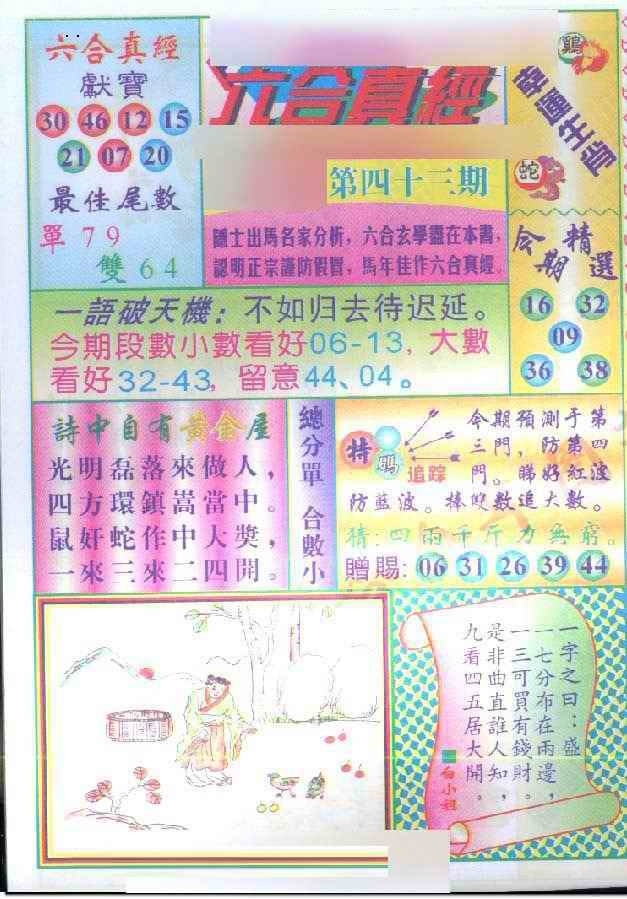 六合真經
獻寶
30 46 12 15
21 07 20
最佳尾數
單 7 9
雙 6 4
六合真經
第四十三期
出馬名家分析，六合玄學盡在本書，
認明正宗謹防假冒，馬年佳作六合真經
鷄
蛇
今期精選
16 32
09
36 38
一語破天機：不如归去待迟延。
今期段數小數看好06-13，大數
看好32-43，留意44、04。
詩中自有黃金屋
光明磊落來做人，
四方環鎮嵩當中。
鼠奸蛇作中大獎，
一來三來二四開。
總分單 合數小
特碼
追踪
今期預測于第
三門，防第四
門。睇好紅波
防藍波。捧雙數追大數。
猜：四兩千斤力無窮。
贈賜：06 31 26 39 44
一字之曰：盛
一七分布在兩邊，
一三可買有錢財，
是非曲直誰人知，
九看四五居大開。
白小姐